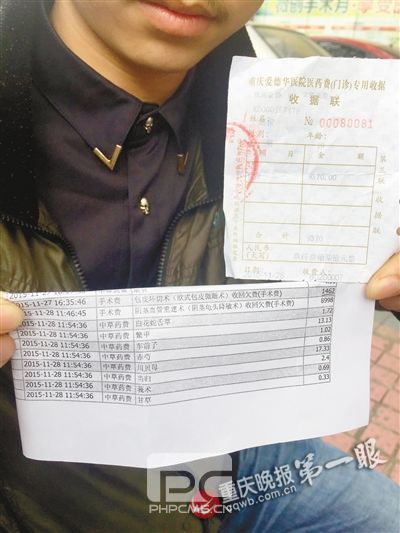 重庆爱德华医院医药费(门诊)专用收据
收据联
№ 00080081
年龄:
金额
第三联
收据联
合计
人民币
(大写)
收费人:
2015-11-27 16:35:46 手术费 包皮环切术（欧式包皮微雕术）收回欠费(手术费) 1462
2015-11-28 11:46:45 手术费 收回欠费(手术费) 8998
2015-11-28 11:54:36 中草药费 白花蛇舌草 1.72
2015-11-28 11:54:36 中草药费 鳖甲 13.13
2015-11-28 11:54:36 中草药费 车前子 1.02
2015-11-28 11:54:36 中草药费 赤芍 0.86
2015-11-28 11:54:36 中草药费 川贝母 17.33
2015-11-28 11:54:36 中草药费 当归 2.4
2015-11-28 11:54:36 中草药费 莪术 0.69
2015-11-28 11:54:36 中草药费 甘草 0.33
PC
PHPCMS.CN
重庆晚报 第一眼
cqwb.com.cn